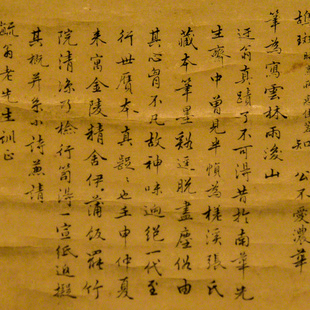 筆為寫雲林雨後山
迂翁真蹟了不可得昔於南華先
生齋中曾見半幀為桂溪張氏
藏本筆墨秀逸脫盡塵俗由
其心胸不凡故神味迥絕一代至
行世贋本真魁也壬申仲夏
來寓金陵精舍伊蒲飯罷竹
院清涼乃檢行笥得一宣紙追擬
其概并系小詩兼請
毓翁老先生訓正